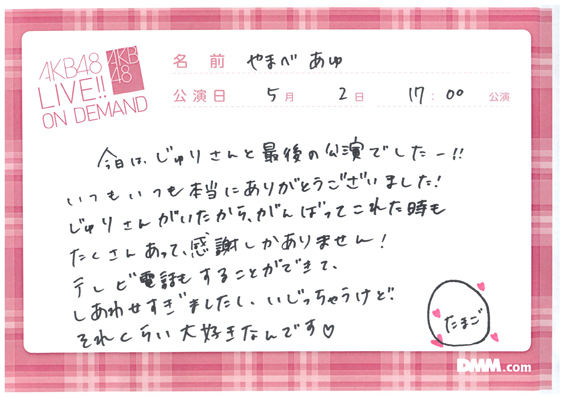 AKB48
LIVE!!
ON DEMAND
AKB
48
名 前 やまべ あゆ
公演日 5月 2日 17:00 公演
今日は、じゅりさんと最後の公演でしたー!!
いつもいつも本当にありがとうございました!
じゅりさんがいたから、がんばってこれた時も
たくさんあって、感謝しかありません!
テレビ電話もすることができて、
しあわせすぎましたし、いじっちゃうけど、
それくらい大好きなんです♡
たまご
DMM.com